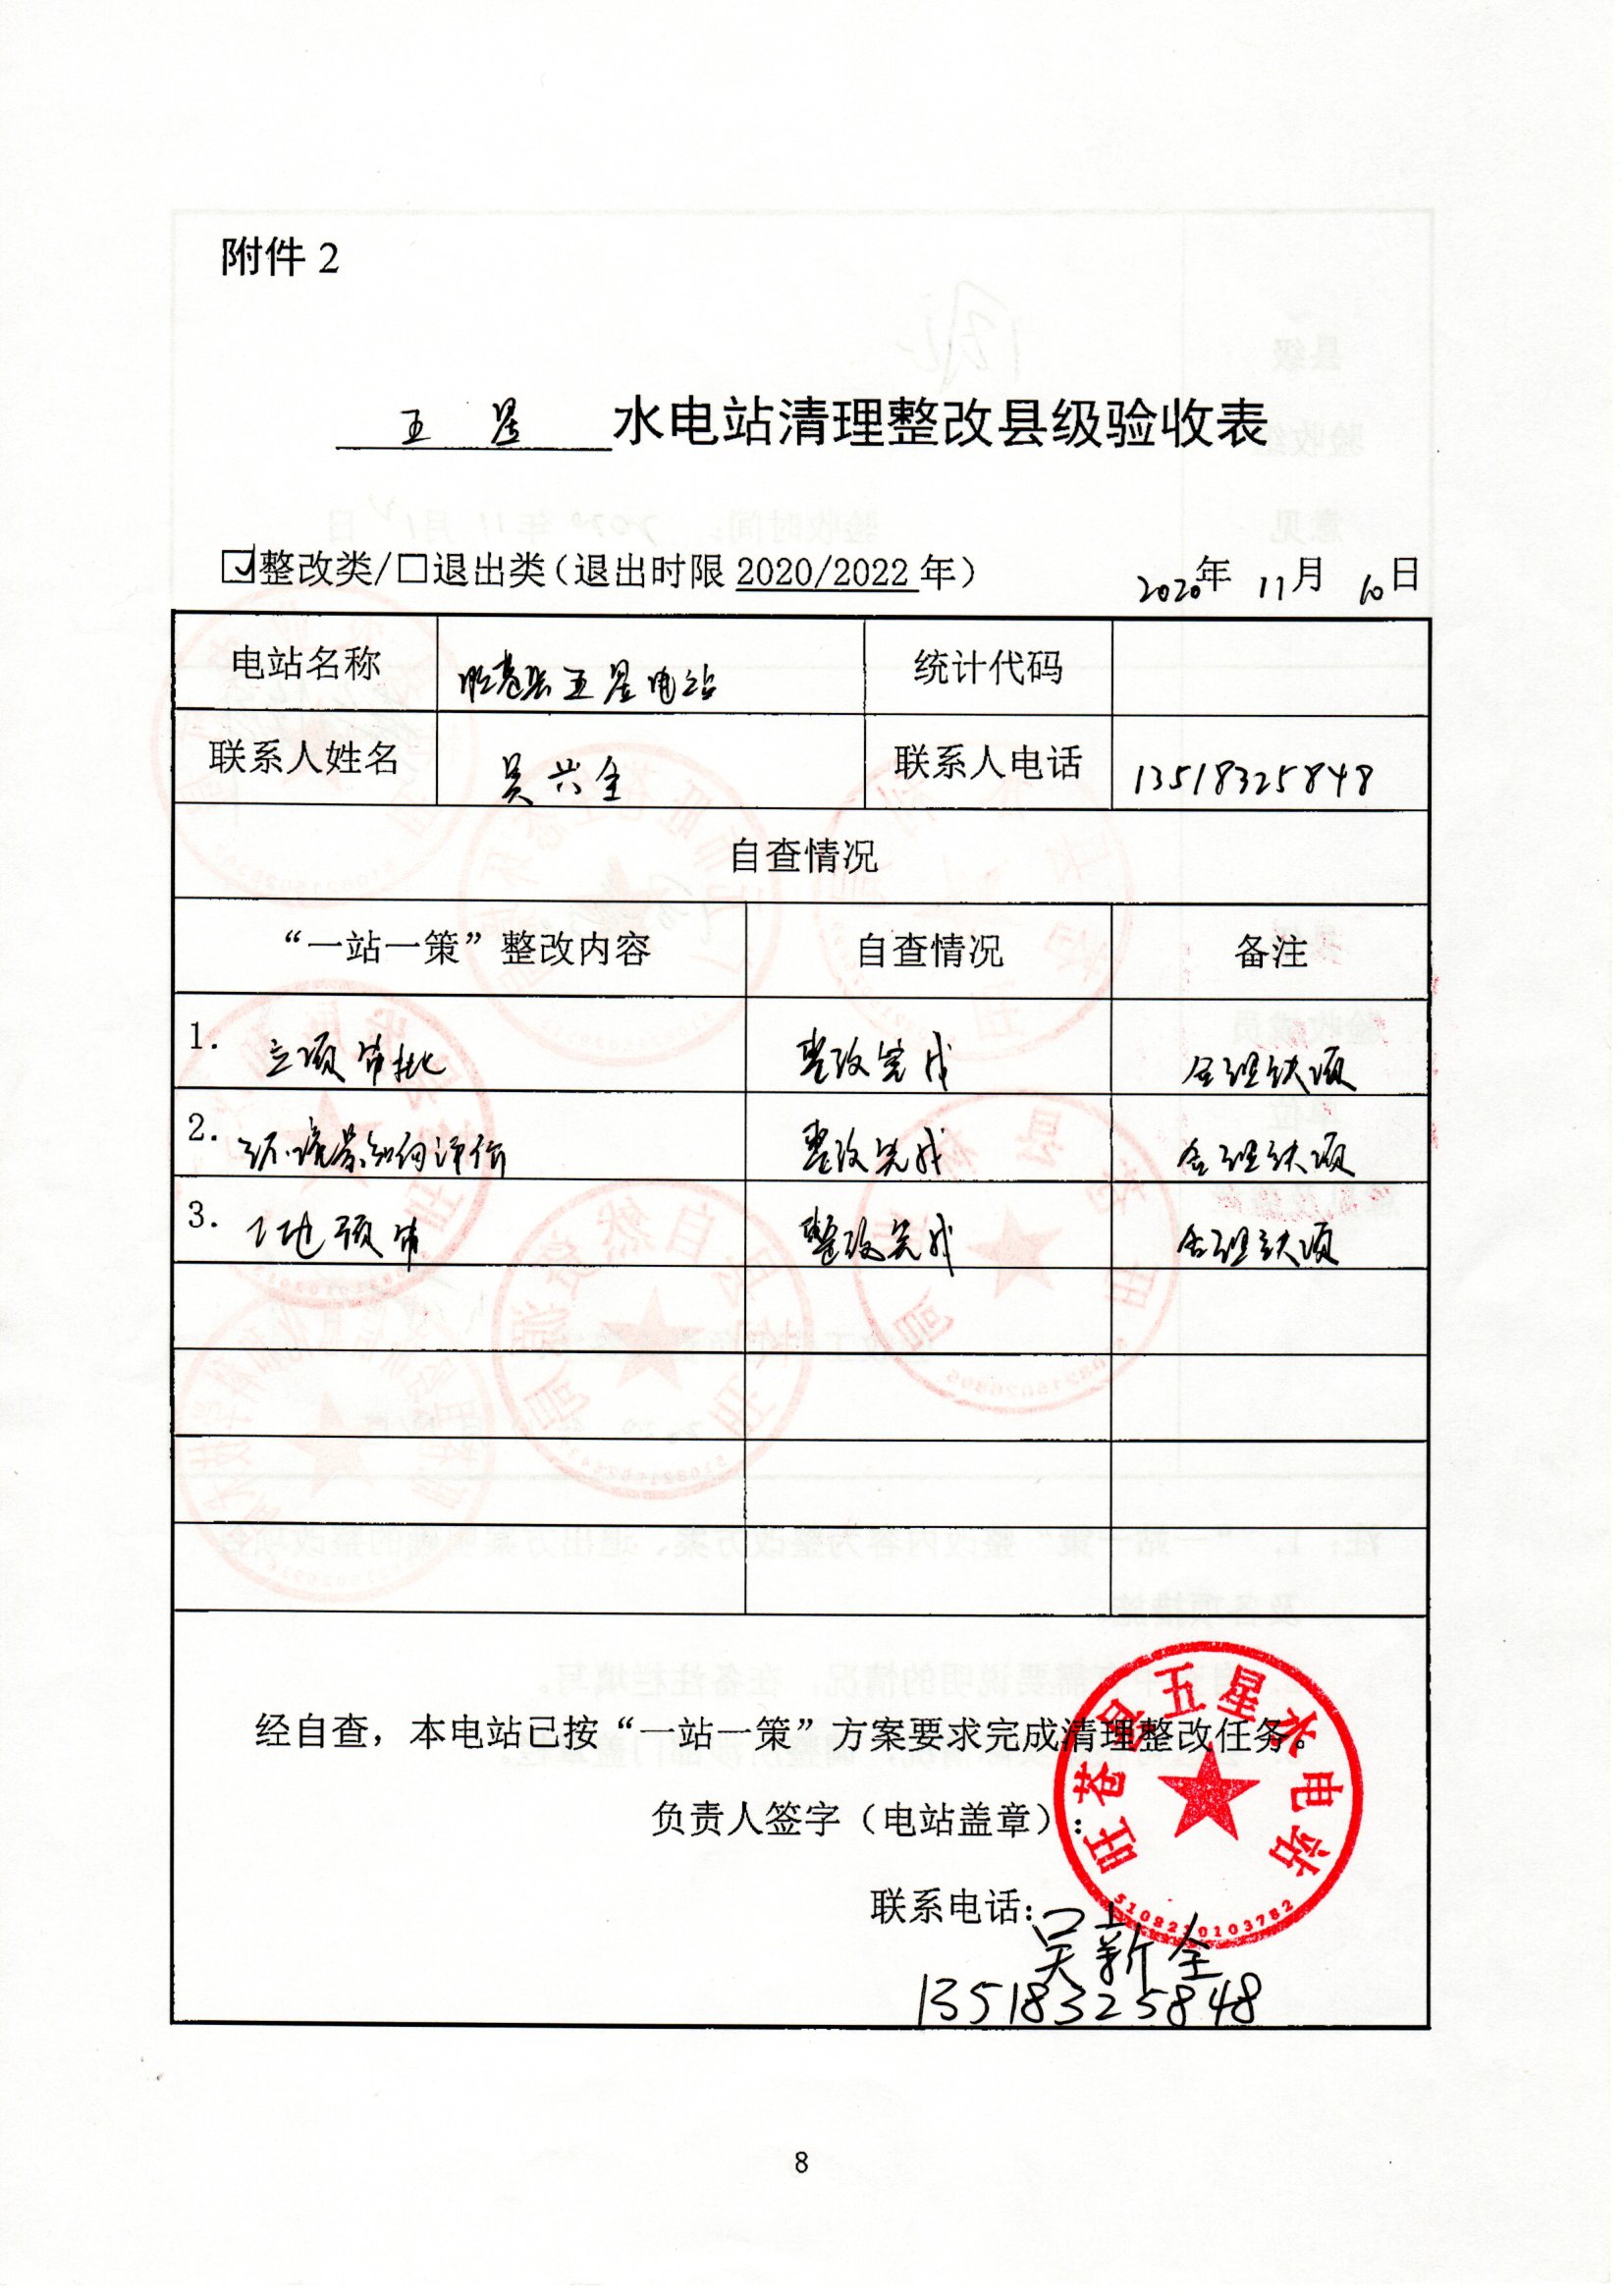 附件2
五星 水电站清理整改县级验收表
☑整改类/☐退出类（退出时限 2020/2022 年） 2020年 11月 10日
电站名称 旺苍县五星电站 统计代码
联系人姓名 吴兴全 联系人电话 13518325848
自查情况
“一站一策”整改内容 自查情况 备注
1. 立项审批 整改完成 合理缺项
2. 环境影响评价 整改完成 合理缺项
3. 土地预审 整改完成 合理缺项
经自查，本电站已按“一站一策”方案要求完成清理整改任务。
负责人签字（电站盖章）：
旺苍县五星水电站
5108210103782
联系电话：
吴新全
13518325848
8